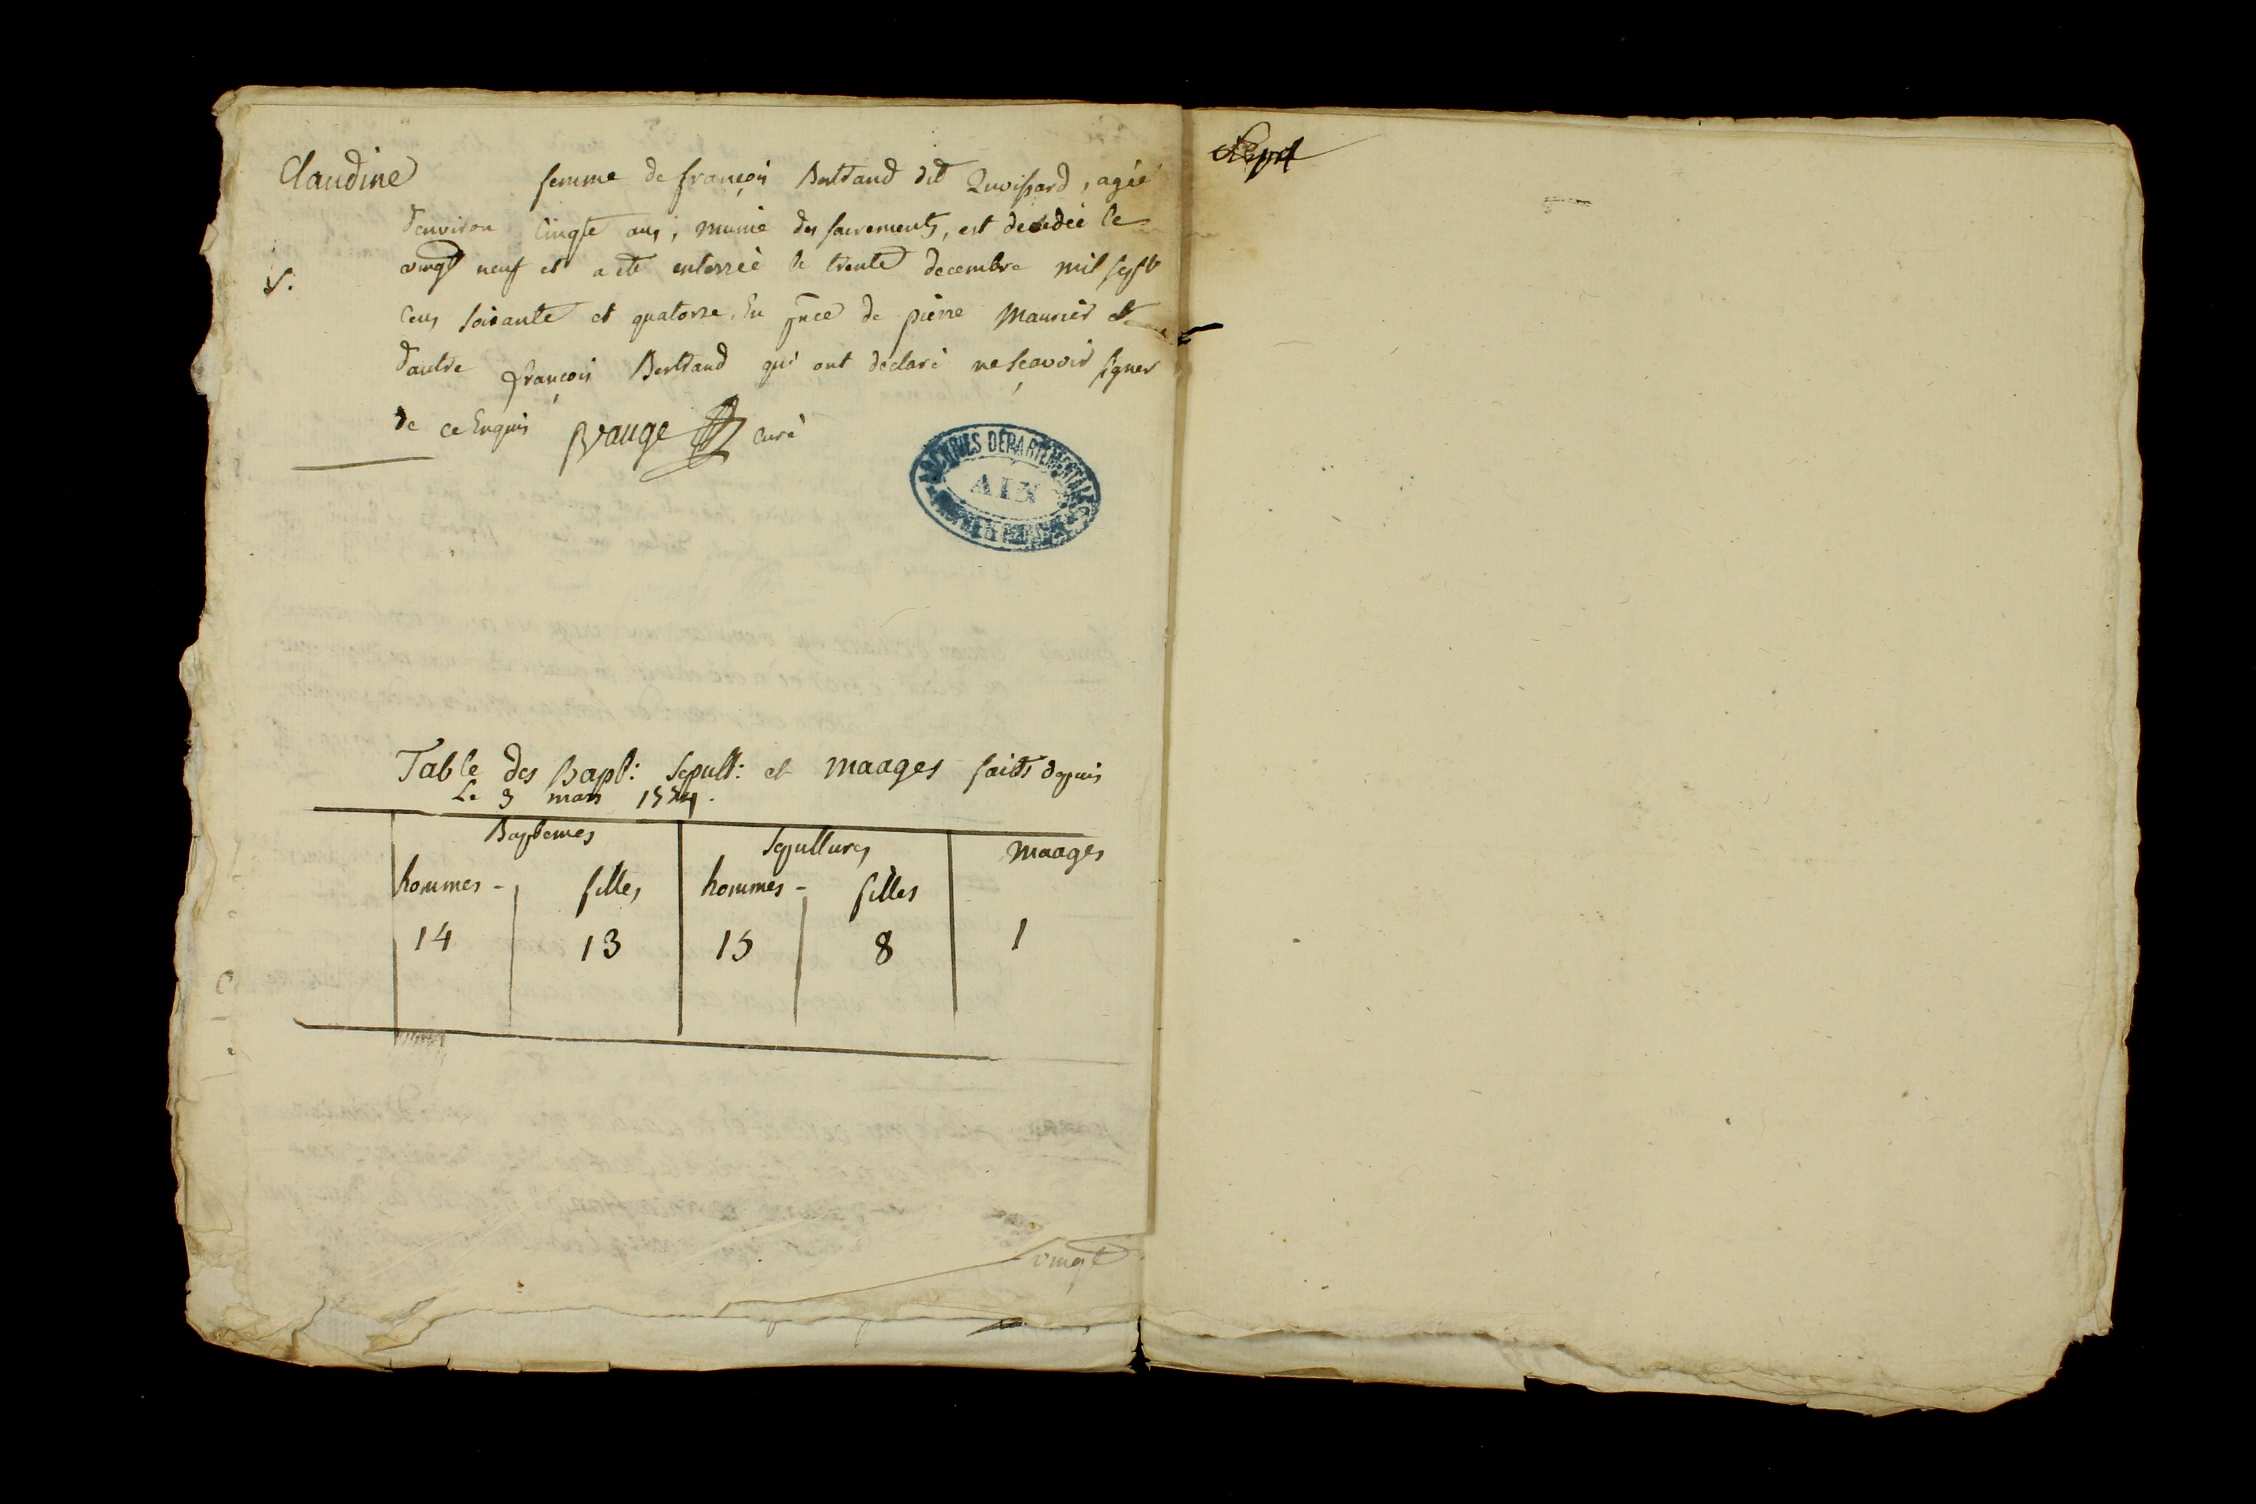 Claudine femme de françois Bertrand dit Quoissard, agée
d'environ cinqte ans, munie des sacrements, est décédée le
S. vingt neuf et a eté enterrée le trente decembre mil sept
cens soixante et quatorze. En pnce de pierre Maunier et
d'autre françois Bertrand qui ont déclaré ne sçavoir signer
de ce Enquis curé
ARCHIVES DÉPARTEMENTALES
AIN
Table des Bapt: Sepult: et maages faits depuis
Le 3 mars 1774.
Baptemes Sepultures maages
hommes - filles hommes - filles
14 13 15 8 1
vingt